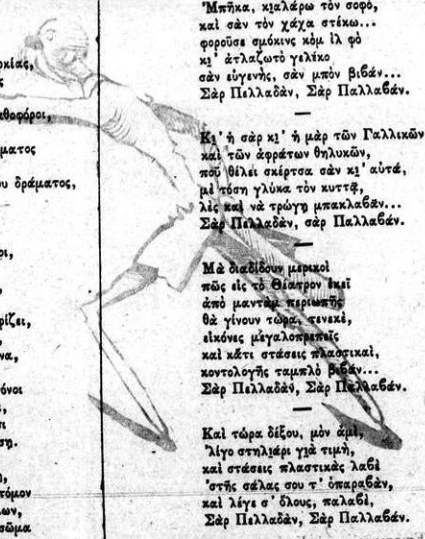 ρκίας,
ς
αθοφόροι,
ματος
υ δράματος,
ρι,
ρίζει,
να,
όνοι
τι
ση.
τόμον
ων,
σῶμα
'Μπῆκα, κιαλάρω τὸν σοφό,
καὶ σὰν τὸν χάχα στέκω...
φοροῦσε σμόκινς κὸμ ἰλ φὸ
κι' ἀτλαζωτὸ γελέκο
σὰν εὐγενής, σὰν μπὸν βιβάν...
Σὰρ Πελλαδὰν, Σὰρ Παλλαβάν.
—
Κι' ἡ σὰρ κι' ἡ μὰρ τῶν Γαλλικῶν
καὶ τῶν ἀφράτων θηλυκῶν,
ποῦ θέλει σκέρτσα σὰν κι' αὐτά,
μὲ τόση γλύκα τὸν κυττᾷ,
λὲς καὶ νὰ τρώγῃ μπακλαβᾶν...
Σὰρ Πελλαδὰν, σὰρ Παλλαβάν.
—
Μὰ διαδίδουν μερικοὶ
πῶς εἰς τὸ Θέατρον ἐκεῖ
ἀπὸ μαντὰμ περιωπῆς
θὰ γίνουν τώρα, τενεκέ,
εἰκόνες μεγαλοπρεπεῖς
καὶ κᾶτι στάσεις πλαστικαί,
κοντολογῆς ταμπλὸ βιβάν...
Σὰρ Πελλαδὰν, Σὰρ Παλλαβάν.
—
Καὶ τώρα δέξου, μὸν ἀμί,
'λίγο στηλιάρι γιὰ τιμή,
καὶ στάσεις πλαστικὰς λαβὲ
'στῆς σάλας σου τ' ὁπαραβάν,
καὶ λέγε σ' ὅλους, παλαβέ,
Σὰρ Πελλαδὰν, Σὰρ Παλλαβάν.